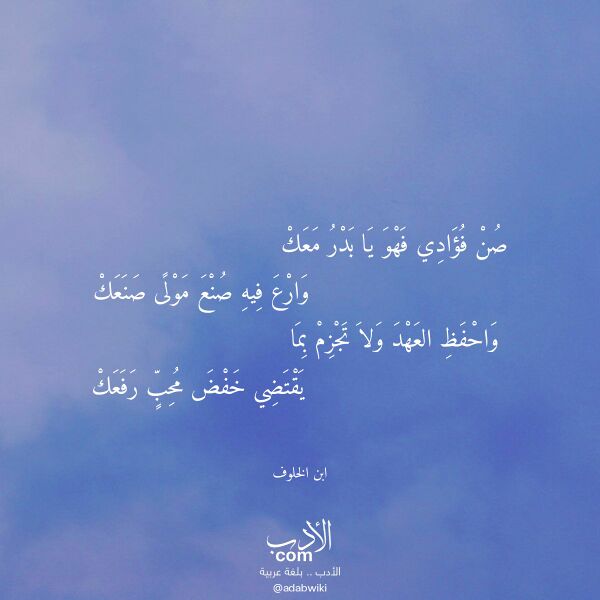 صُنْ فُؤَادِي فَهْوَ يَا بَدْرُ مَعَكْ
وَارْعَ فِيهِ صُنْعَ مَوْلًى صَنَعَكْ
وَاحْفَظِ العَهْدَ وَلاَ تَجْزِمْ بِمَا
يَقْتَضِي خَفْضَ مُحِبٍّ رَفَعَكْ
ابن الخلوف
الأدب
com
الأدب .. بلغة عربية
@adabwiki